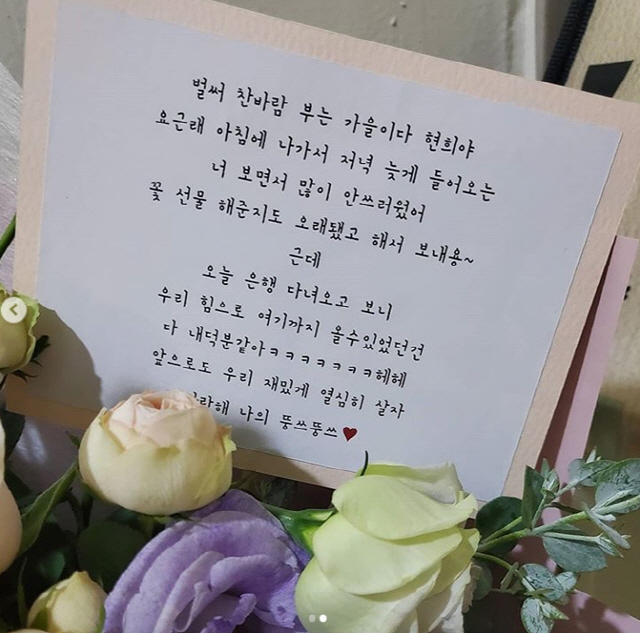 벌써 찬바람 부는 가을이다 현희야
요근래 아침에 나가서 저녁 늦게 들어오는
너 보면서 많이 안쓰러웠어
꽃 선물 해준지도 오래됐고 해서 보내용~
근데
오늘 은행 다녀오고 보니
우리 힘으로 여기까지 올수있었던건
다 내덕분같아ㅋㅋㅋㅋㅋㅋㅋ헤헤
앞으로도 우리 재밌게 열심히 살자
나의 뚱쓰뚱쓰♥